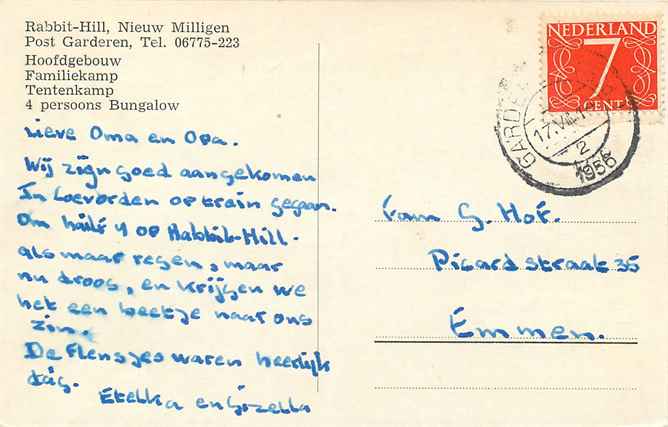 Rabbit-Hill, Nieuw Milligen
Post Garderen, Tel. 06775-223
Hoofdgebouw
Familiekamp
Tentenkamp
4 persoons Bungalow
Lieve Oma en Opa.
Wij zijn goed aangekomen
In Coevorden op train gegaan.
Om half 4 op Rabbit-Hill.
als maar regen, maar
nu droog, en krijgen we
het een beetje naar ons
zin.
De Flensjes waren heerlijk
dag.
Etelka en Gizella
NEDERLAND
7
CENT
17.VIII.1
2
1956
Fam G. Hof.
Picardstraat 35
Emmen.